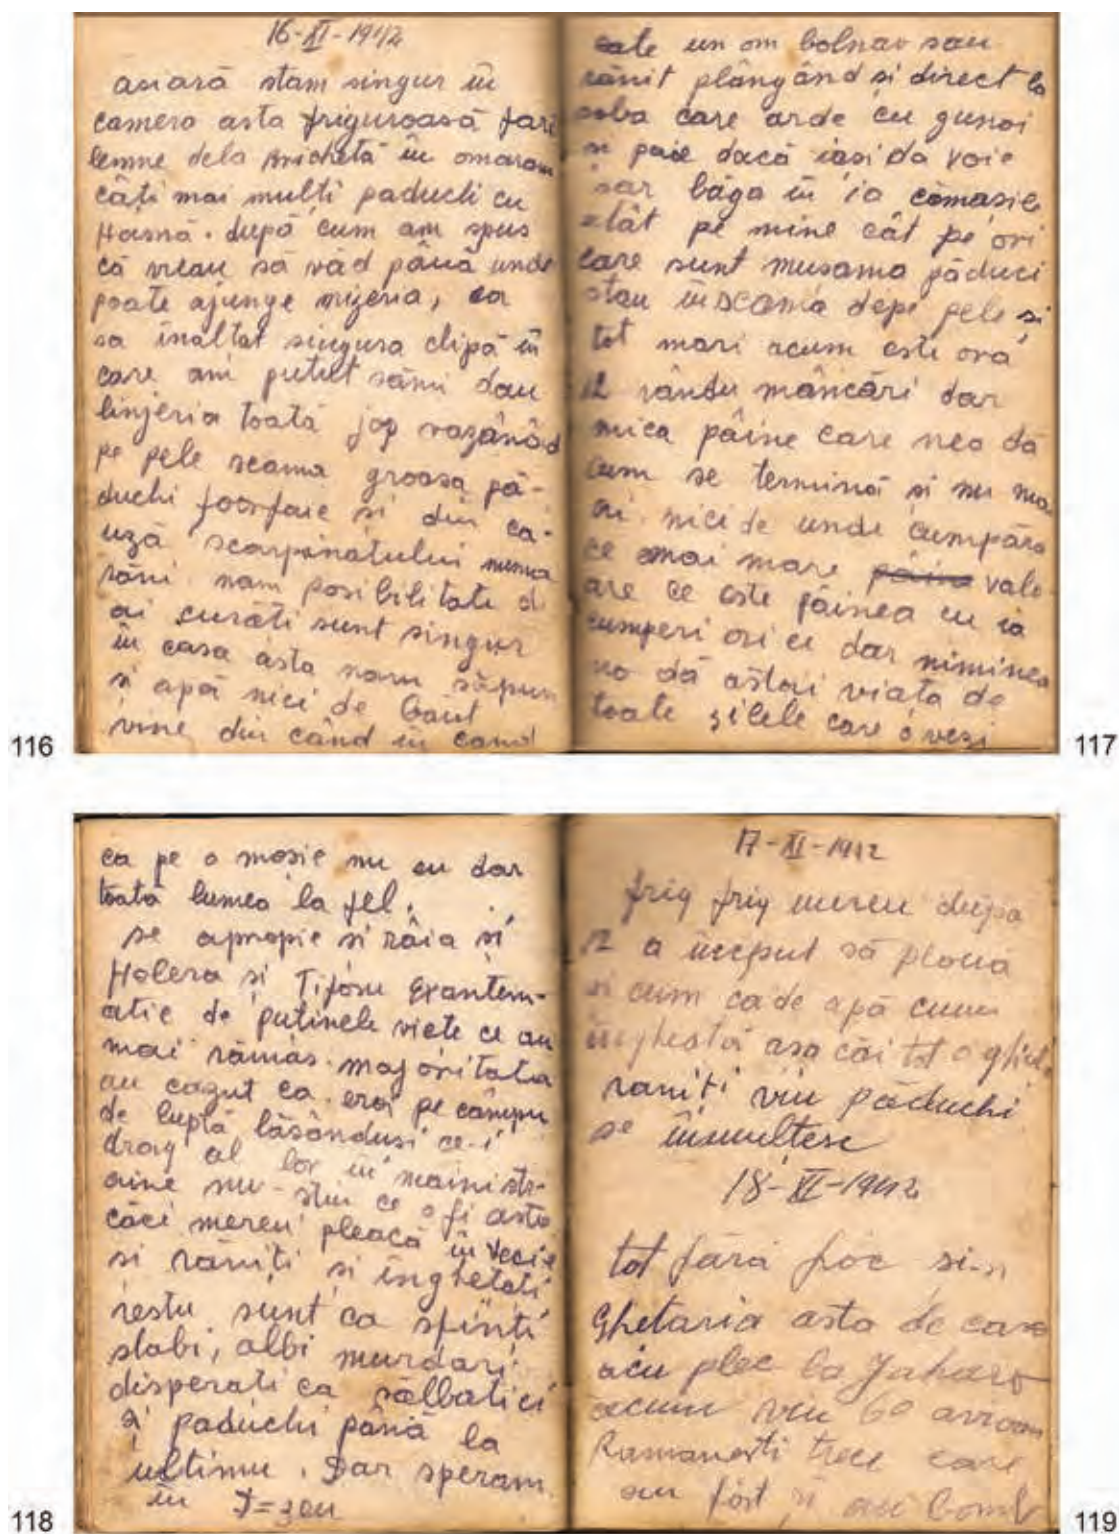 16-XI-1942
asiară stam singur în
camera asta friguroasă fară
lemne dela brichetă în omoram
câți mai mulți paduchi cu
Hasnă. după cum am spus
că vreau să văd până unde
poate ajunge mizeria, ea
sa inaltat singura clipă în
care am putut sămi dau
linjeria toată jop vazând
pe pele scama groasa pă-
duchi foorfaie și din ca-
uză scarpinatului numa
răni nam posibilitate d
ai curăti sunt singur
în casa asta nam săpun
si apă nici de baut
vine din când în cand
116
cate un om bolnav sau
rănit plângând si direct la
soba care arde cu gunoi
si paie dacă iasi da voie
sar băga în ia cămasile
atât pe mine cât pe ori
care sunt musama păduci
stau în scama depe pele si
tot mari acum este ora
12 rândU mâncări dar
mica pâine care neo dă
cum se termină si nu mai
ai nici de unde cumpăra
ce mai mare valo-
are ce este pâinea cu ia
cumperi ori ce dar niminea
no dă astai viata de
toate zilele care o vezi
117
ca pe o mosie nu eu dar
toată lumea la fel.
se apropie si râia si
Holera si Tifosu Exantem-
atic de putinele viete ce au
mai rămas. majoritatea
au cazut ca eroi pe câmpu
de luptă lăsăndusi ce-i
drag al lor în mainistr-
aine nu-stiu ce o fi asta
căci mereu pleacă în vecie
si răniti si înghetati
restu sunt ca sfinti
slabi, albi murdari
disperati ca sălbatici
si paduchi până la
ultimu. Dar speram
în D=zeu
118
17-XI-1942
frig frig mereu dupa
12 a început să plouă
si cum cade apă cum
îngheată asa căi tot o
raniti viu păduchi
se înmultesc
18-XI-1942
tot fără foc si-n
Ghetaria asta de casa
acu plec la
acum viu 60 avioane
Ramanesti trece care
au fost și au bomb
119